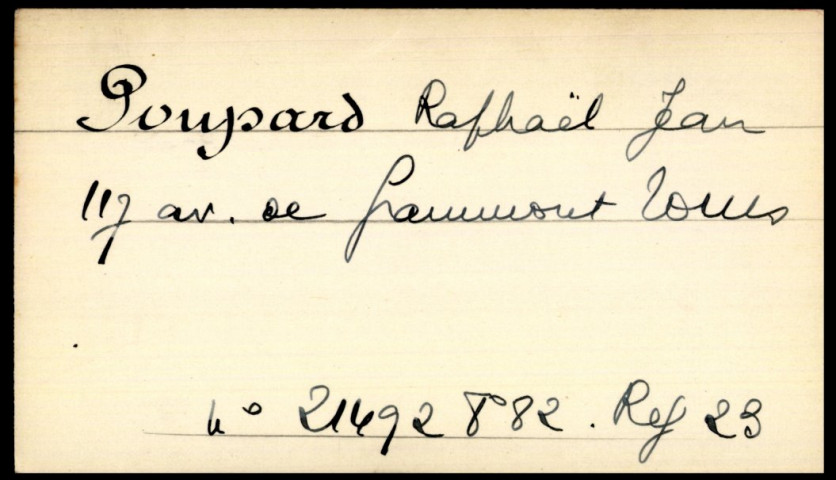 Poupard Raphaël Jean
117 av. de Grammont Tours
n° 21492 F° 82. Reg 23